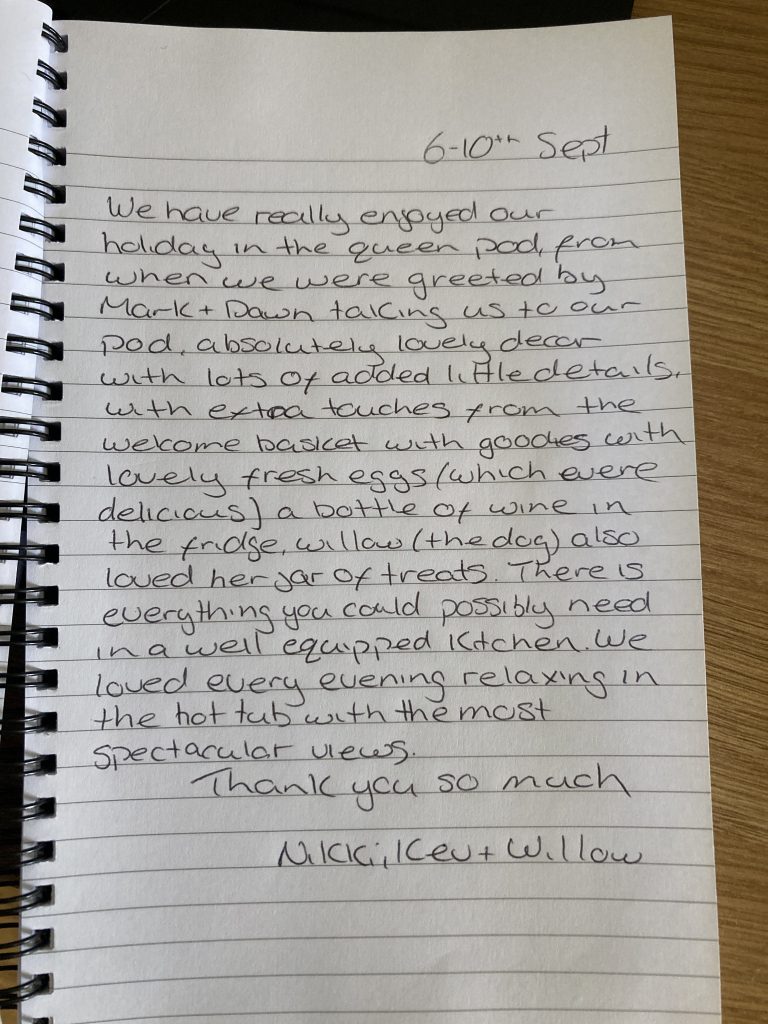 6-10th Sept
We have really enjoyed our
holiday in the queen pod, from
when we were greeted by
Mark + Dawn taking us to our
pod, absolutely lovely decor
with lots of added little details,
with extra touches from the
welcome basket with goodies with
lovely fresh eggs (which were
delicious) a bottle of wine in
the fridge, willow (the dog) also
loved her jar of treats. There is
everything you could possibly need
in a well equipped kitchen. We
loved every evening relaxing in
the hot tub with the most
spectacular views.
Thank you so much
Nikki, Kev + Willow